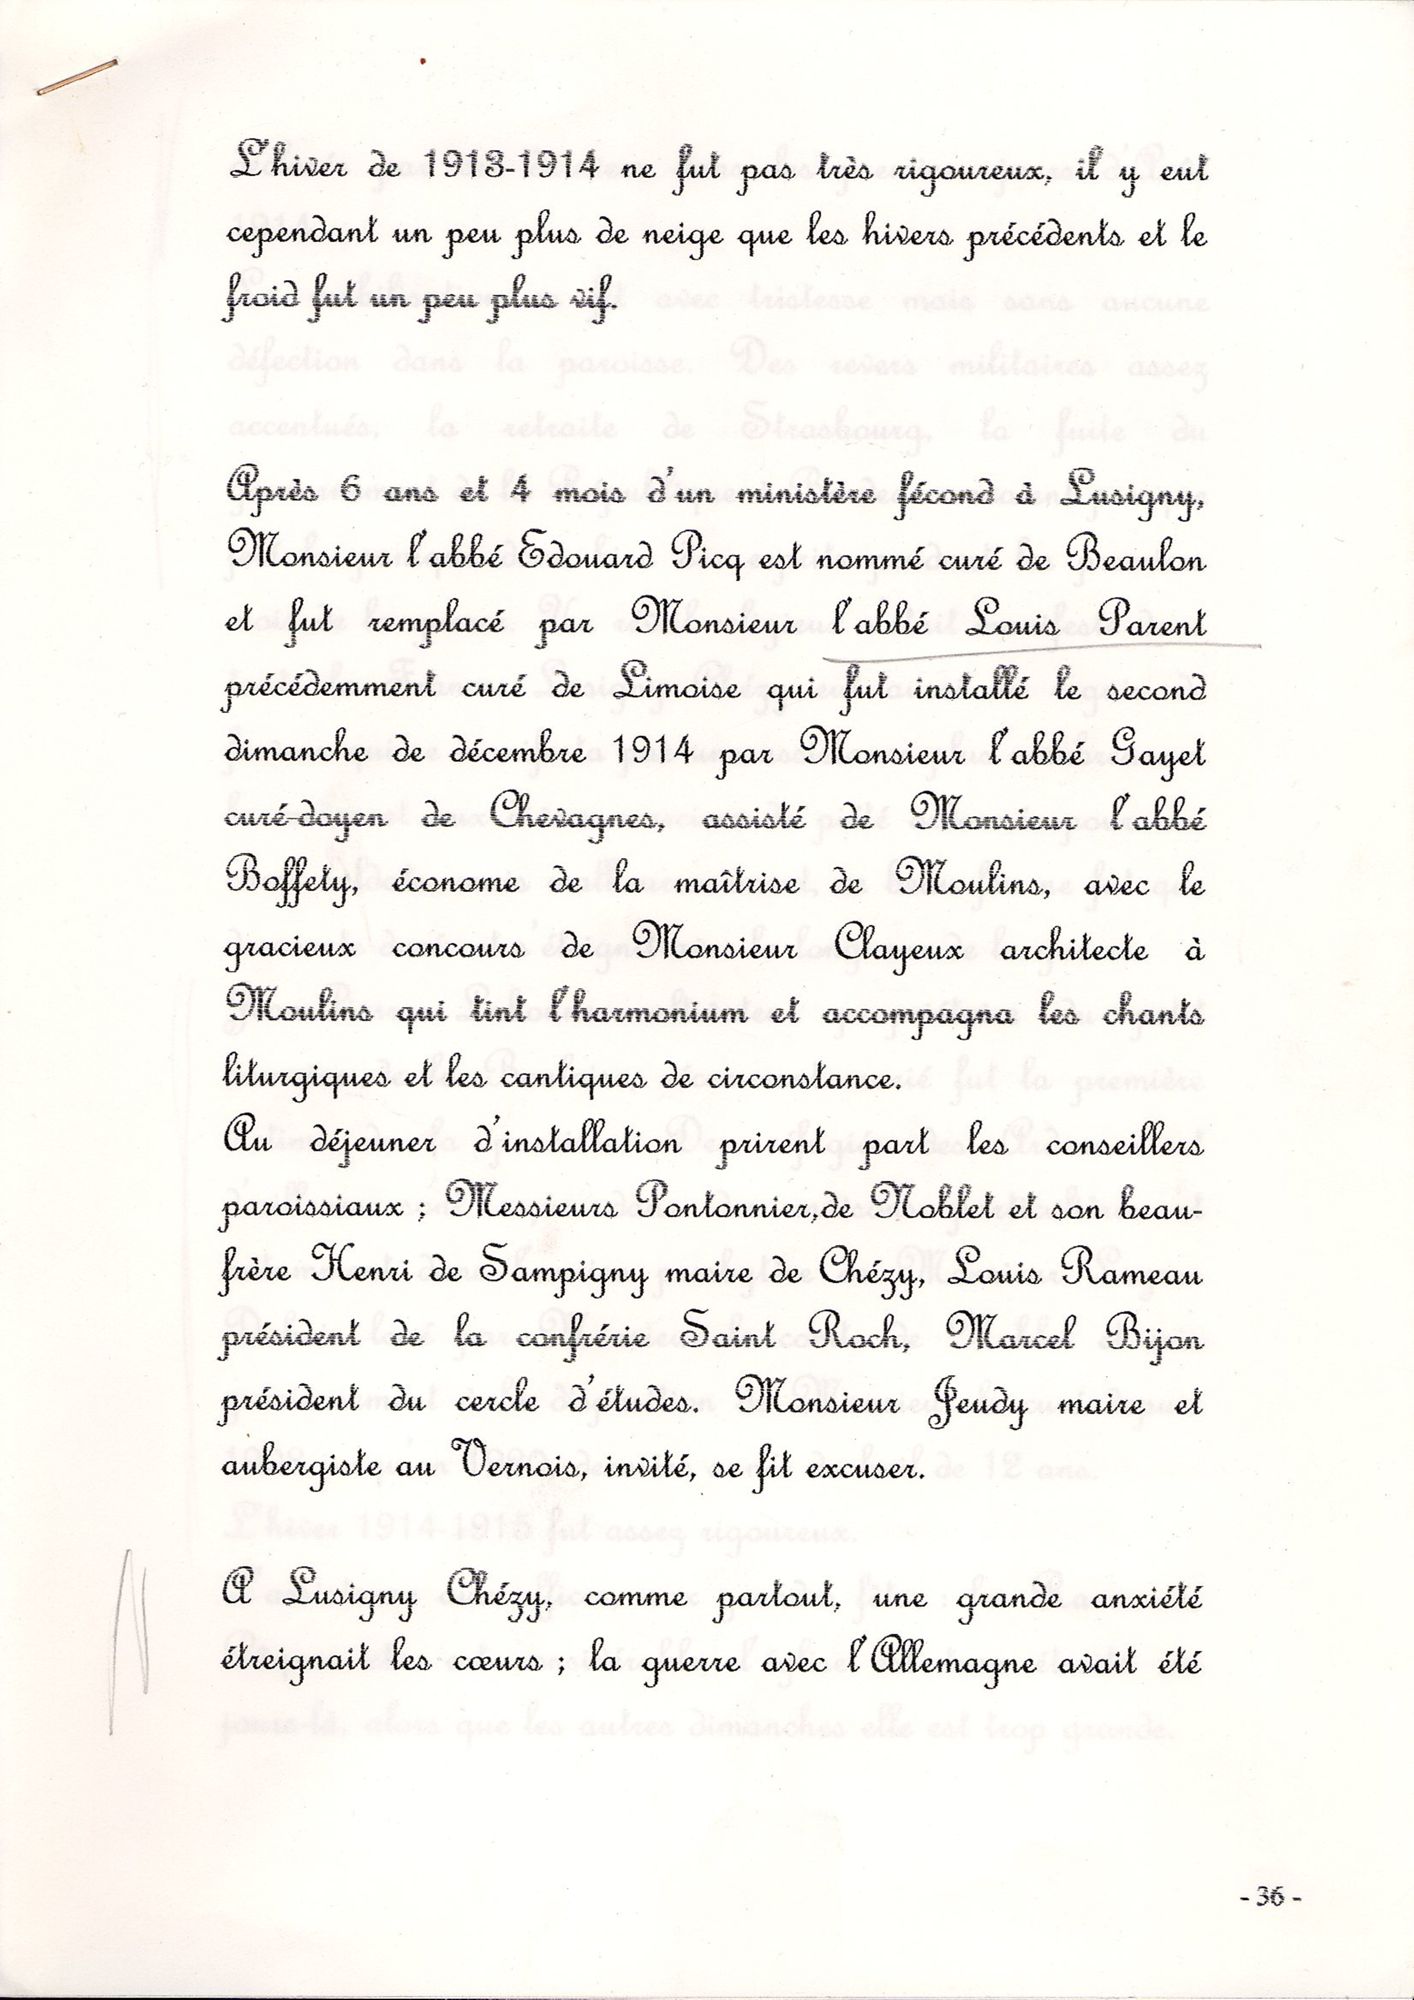 L'hiver de 1913-1914 ne fut pas très rigoureux, il y eut
cependant un peu plus de neige que les hivers précédents et le
froid fut un peu plus vif.
Après 6 ans et 4 mois d'un ministère fécond à Lusigny,
Monsieur l'abbé Edouard Picq est nommé curé de Beaulon
et fut remplacé par Monsieur l'abbé Louis Parent
précédemment curé de Limoise qui fut installé le second
dimanche de décembre 1914 par Monsieur l'abbé Gayet
curé-doyen de Chevagnes, assisté de Monsieur l'abbé
Boffety, économe de la maîtrise de Moulins, avec le
gracieux concours de Monsieur Clayeux architecte à
Moulins qui tint l'harmonium et accompagna les chants
liturgiques et les cantiques de circonstance.
Au déjeuner d'installation prirent part les conseillers
paroissiaux ; Messieurs Pontonnier,de Noblet et son beau-
frère Henri de Sampigny maire de Chézy, Louis Rameau
président de la confrérie Saint Roch, Marcel Bijon
président du cercle d'études. Monsieur Jeudy maire et
aubergiste au Vernois, invité, se fit excuser.
A Lusigny Chézy, comme partout, une grande anxiété
étreignait les cœurs ; la guerre avec l'Allemagne avait été
- 36 -